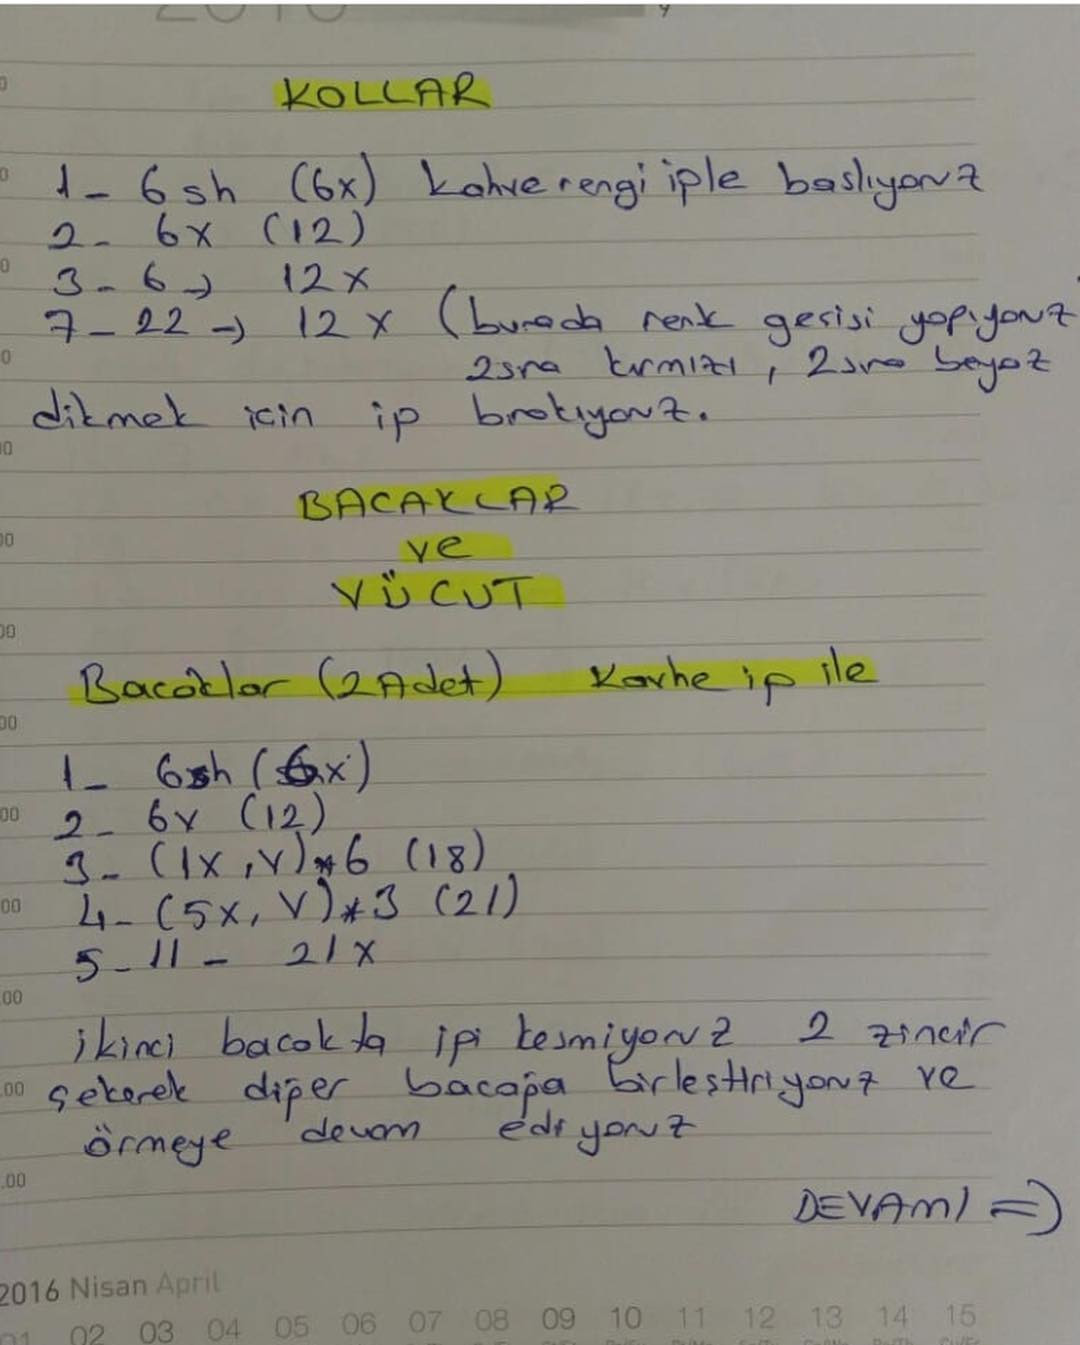 KOLLAR
1- 6 sh (6x) kahve rengi iple baslıyoruz
2- 6x (12)
3- 6 → 12x
7- 22 → 12x (burada renk geçisi yapıyoruz
2 sıra kırmızı, 2 sıra beyaz
dikmek için ip bırakıyoruz.
BACAKLAR
ve
VÜCUT
Bacaklar (2 Adet) Kavhe ip ile
1- 6sh (6x)
2- 6v (12)
3- (1x, v)*6 (18)
4- (5x, v)*3 (21)
5- 11 - 21x
ikinci bacakta ipi kesmiyoruz 2 zincir
çekerek diğer bacağa birlestiriyoruz ve
örmeye devam ediyoruz
DEVAMI =>
2016 Nisan April
01 02 03 04 05 06 07 08 09 10 11 12 13 14 15